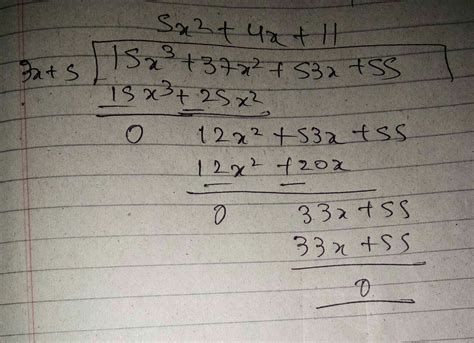 5x2 + 4x + 11
3x+5 15x³ + 37x² + 53x + 55
15x³ + 25x²
0 12x² + 53x + 55
12x² + 20x
0 33x + 55
33x + 55
0